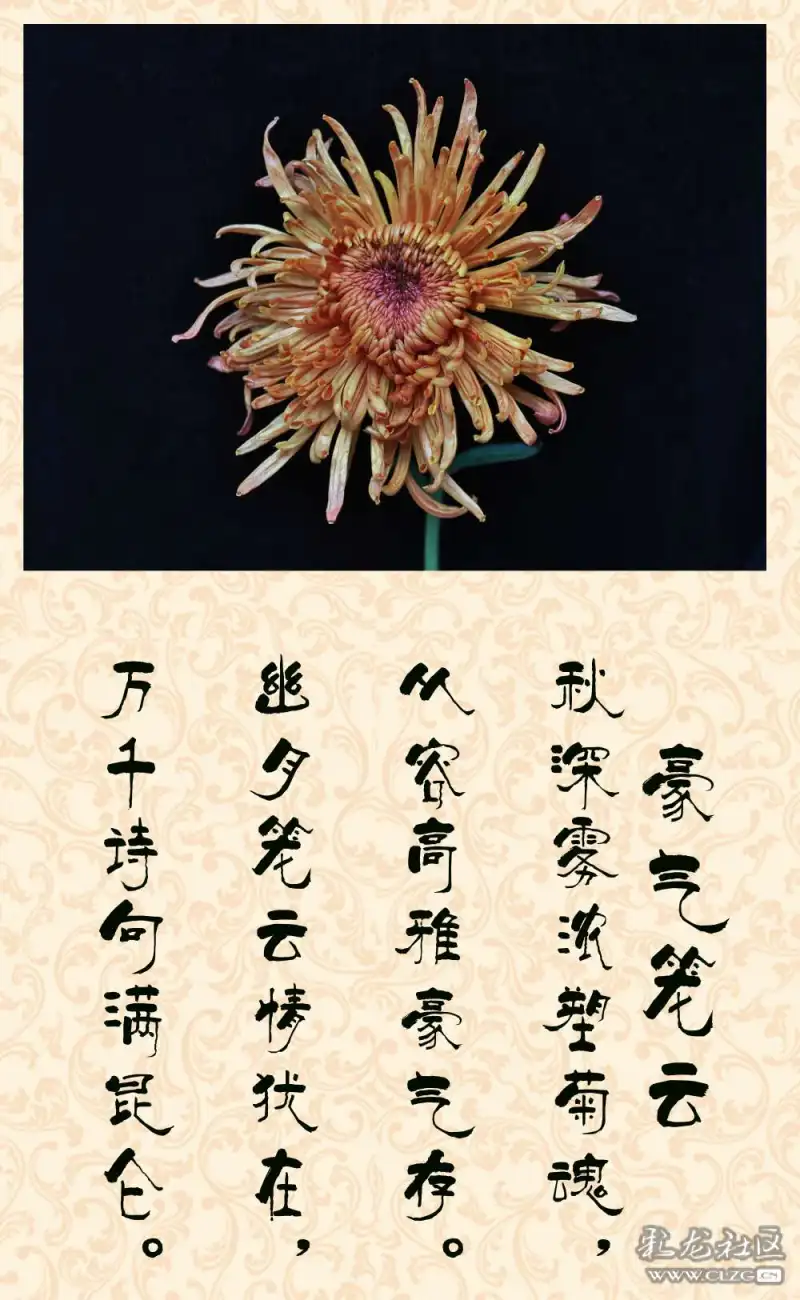 豪气笼云
秋深雾浓塑菊魂，
从容高雅豪气存。
幽夕笼云情犹在，
万千诗句满昆仑。
彩龙社区
WWW.CLZG.CN